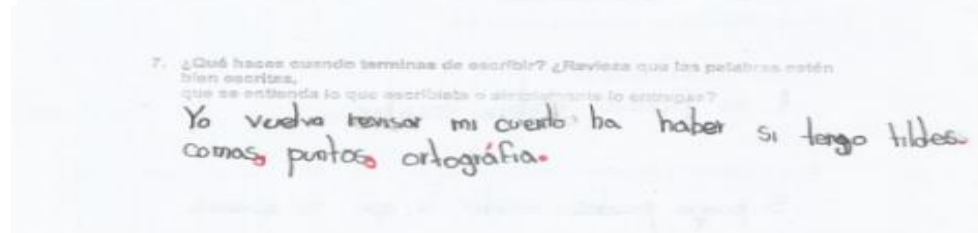 7. ¿Qué haces cuando terminas de escribir? ¿Revisas que las palabras estén
bien escritas,
que se entienda lo que escribiste o simplemente lo entregas?
Yo vuelvo revisar mi cuento ha haber si tengo tildes
comas, puntos, ortográfia.